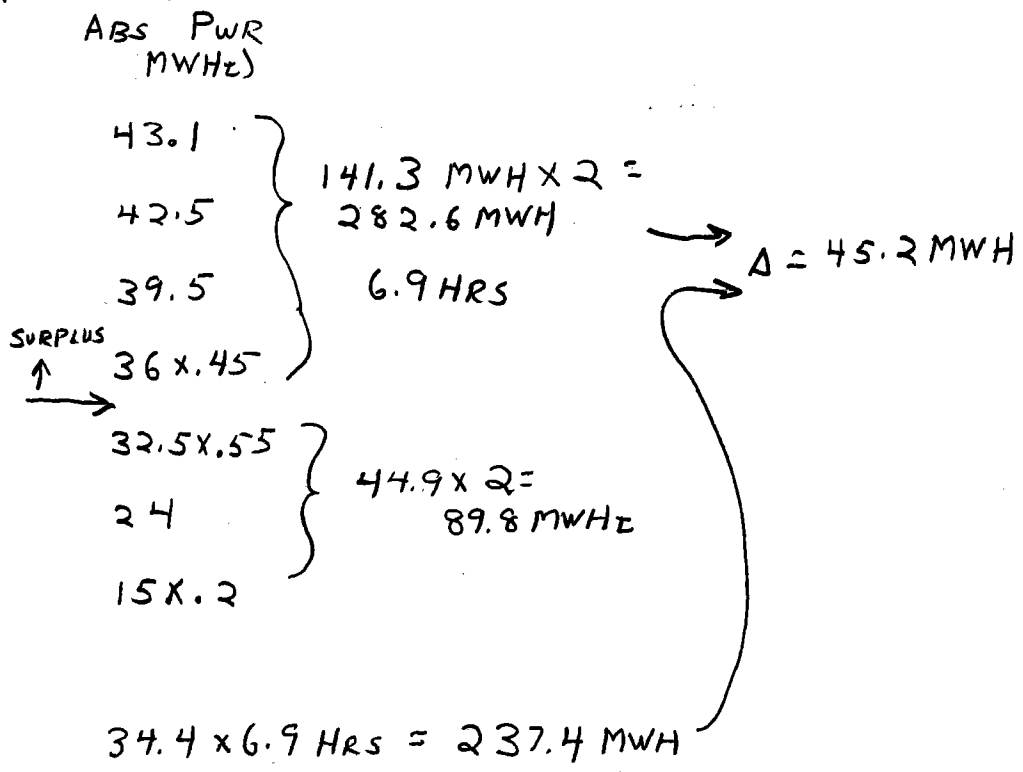 ABS PWR
MWHt)
43.1
42.5
39.5
36 x.45
141.3 MWH X 2 =
282.6 MWH
6.9 HRS
Δ = 45.2 MWH
SURPLUS
↑
32.5X.55
24
15X.2
44.9 x 2=
89.8 MWHt
34.4 x 6.9 HRS = 237.4 MWH